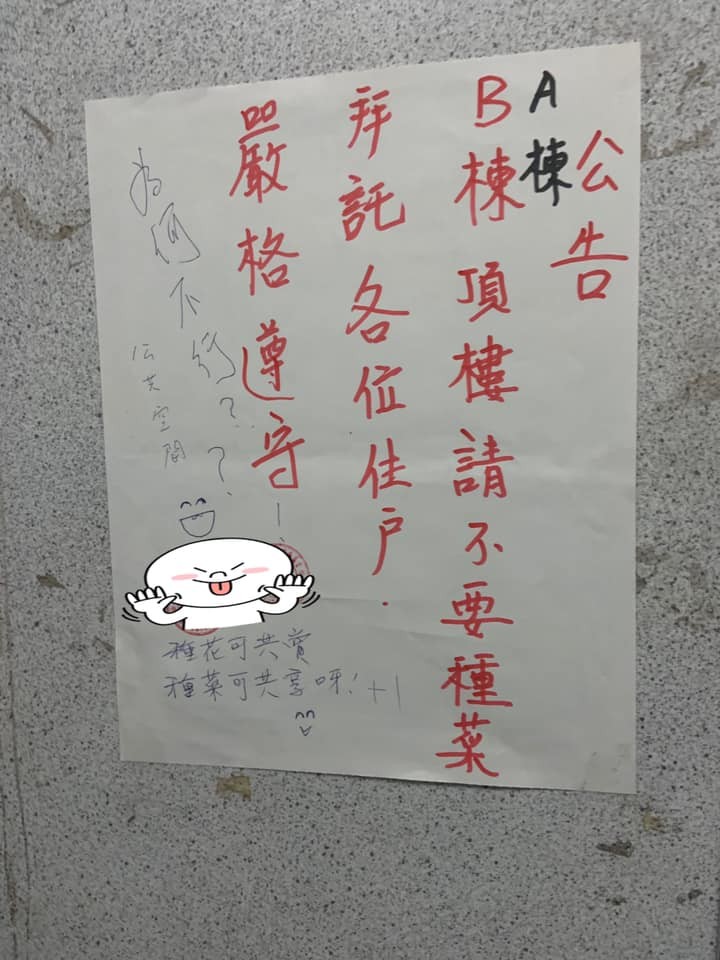 公告
A棟
B棟頂樓請不要種菜
拜託各位住戶.
嚴格遵守
為何不行???
公共空間
種花可共賞
種菜可共享呀!+1